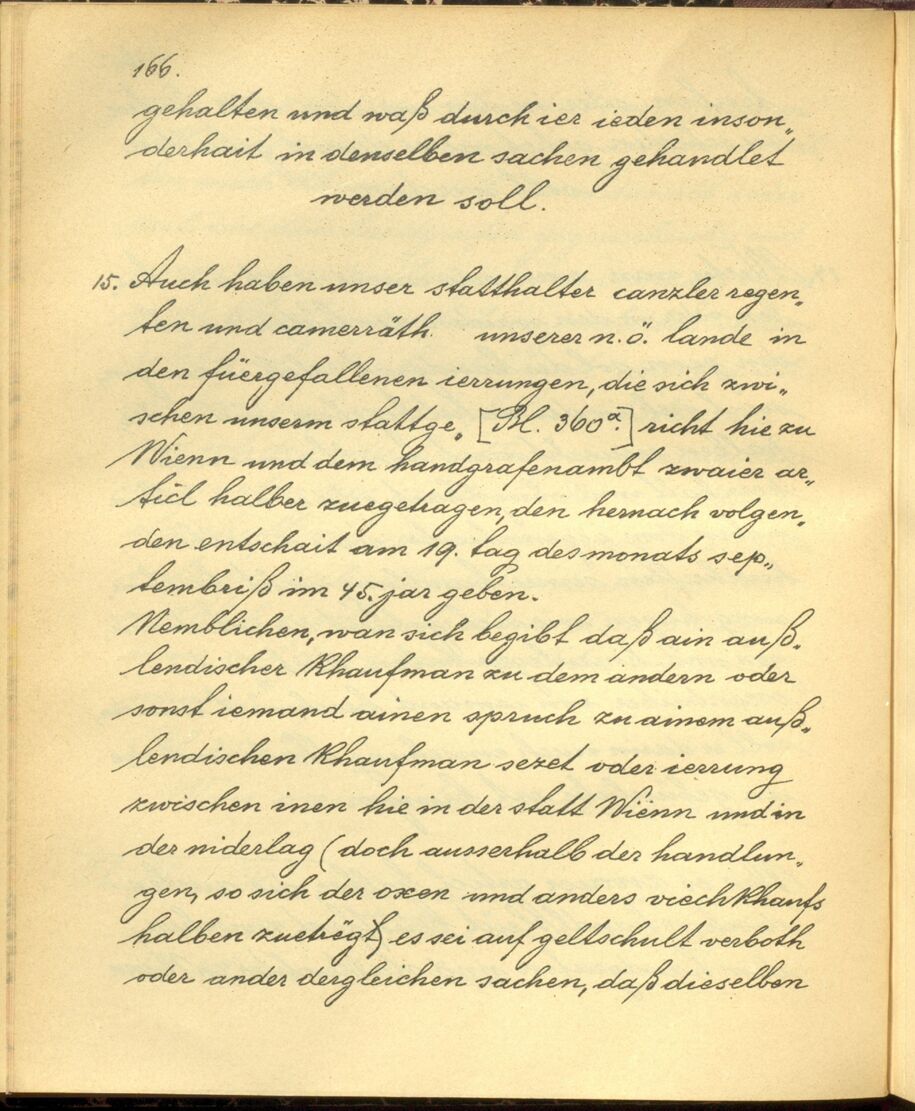 166.
gehalten und waß durch ier ieden inson„
derhait in denselben sachen gehandlet
werden soll.
15. Auch haben unser statthalter canzler regen„
ten und camerräth unserer n.ö. lande in
den füergefallenen ierrungen, die sich zwi„
schen unserm stattge„ [Bl. 360a.] richt hie zu
Wienn und dem handgrafenambt zwaier ar„
ticl halber zuegetragen, den hernach volgen„
den entschait am 19. tag des monats sep„
tembriß im 45. jar geben.
Nemblichen, wan sich begibt daß ain auß„
lendischer Khaufman zu dem andern oder
sonst iemand ainen spruch zu ainem auß„
lendischen Khaufman sezet oder ierrung
zwischen inen hie in der statt Wienn und in
der niderlag (doch ausserhalb der handlun„
gen, so sich der oxen und anders viechkhaufs
halben zueträgt) es sei auf geltschult verboth
oder ander dergleichen sachen, daß dieselben